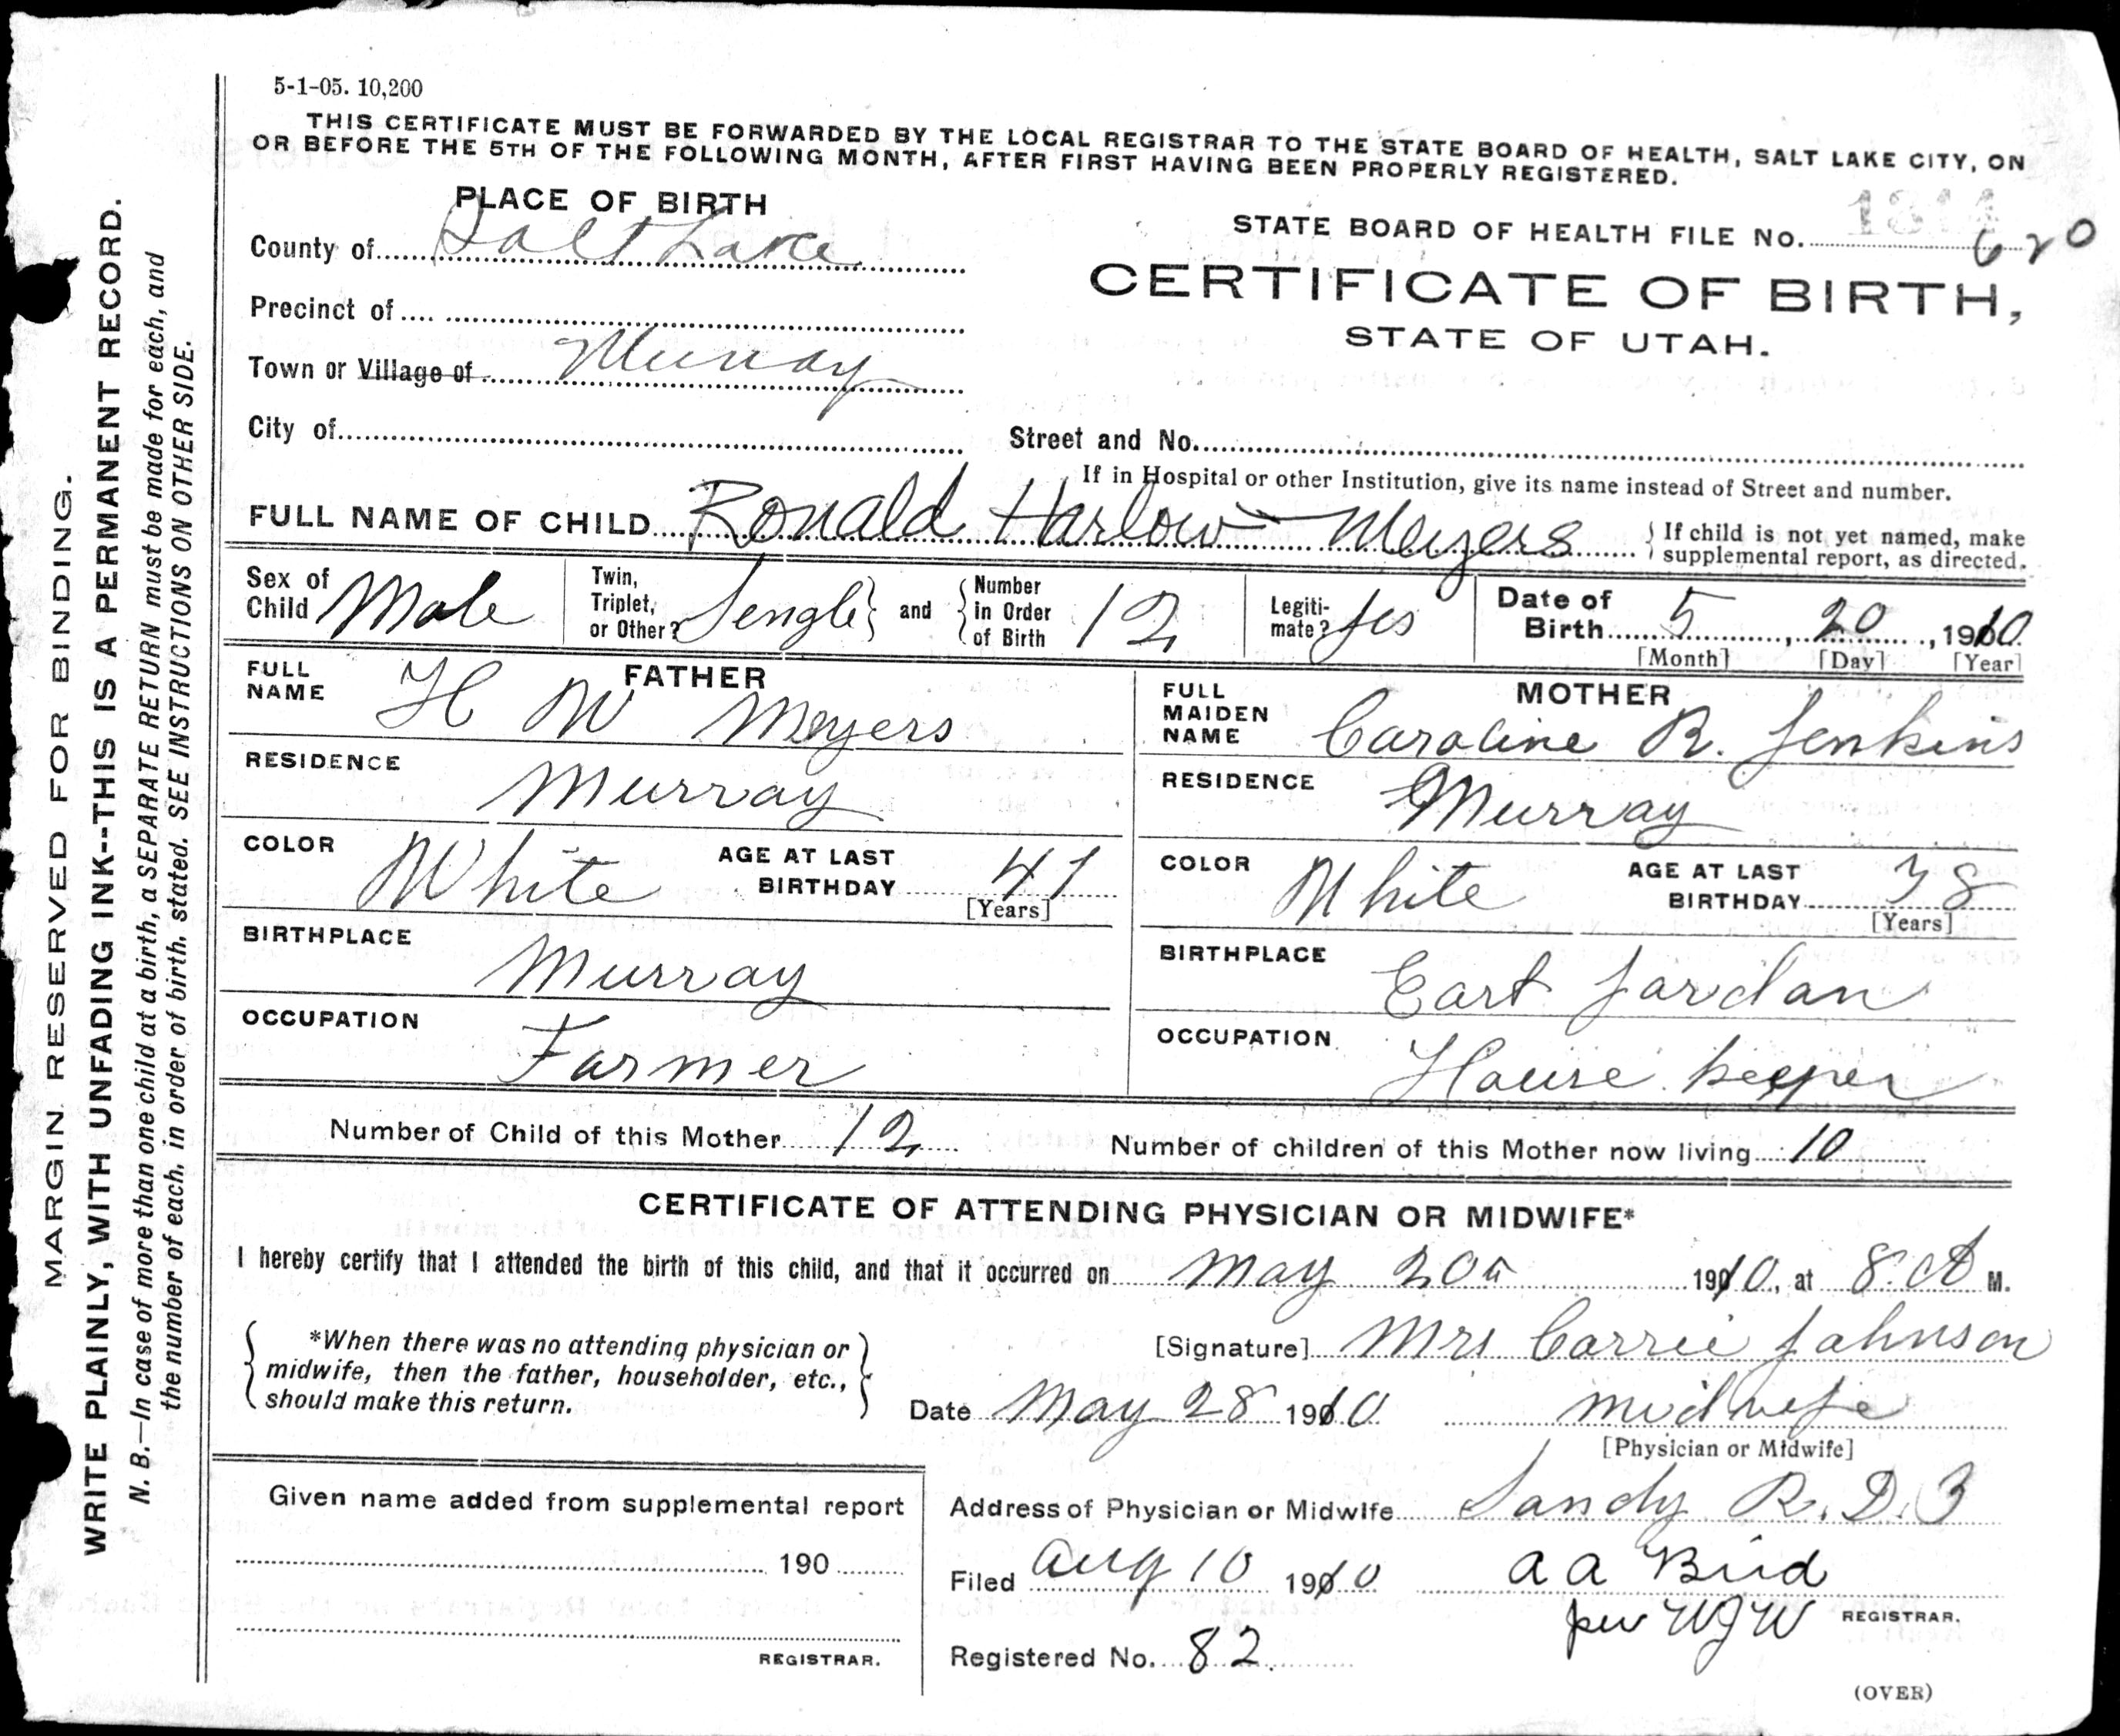 5-1-05. 10,200
THIS CERTIFICATE MUST BE FORWARDED BY THE LOCAL REGISTRAR TO THE STATE BOARD OF HEALTH, SALT LAKE CITY, ON
OR BEFORE THE 5TH OF THE FOLLOWING MONTH, AFTER FIRST HAVING BEEN PROPERLY REGISTERED.
PLACE OF BIRTH
County of Salt Lake
Precinct of
Town or Village of Murray
City of
STATE BOARD OF HEALTH FILE No. 620
CERTIFICATE OF BIRTH,
STATE OF UTAH.
Street and No.
If in Hospital or other Institution, give its name instead of Street and number.
FULL NAME OF CHILD Ronald Harlow Meyers { If child is not yet named, make
supplemental report, as directed.
Sex of Child Male
Twin, Triplet, or Other? Sengle } and { Number in Order of Birth 12
Legiti-mate? Yes
Date of Birth 5, 20, 1910
[Month] [Day] [Year]
FATHER
FULL NAME H W Meyers
RESIDENCE Murray
COLOR White AGE AT LAST BIRTHDAY 41
[Years]
BIRTHPLACE Murray
OCCUPATION Farmer
MOTHER
FULL MAIDEN NAME Caroline R. Jenkins
RESIDENCE Murray
COLOR White AGE AT LAST BIRTHDAY 38
[Years]
BIRTHPLACE East Jordan
OCCUPATION House keeper
Number of Child of this Mother 12 Number of children of this Mother now living 10
CERTIFICATE OF ATTENDING PHYSICIAN OR MIDWIFE*
I hereby certify that I attended the birth of this child, and that it occurred on May 20th 1910, at 8. A M.
{ *When there was no attending physician or
midwife, then the father, householder, etc.,
should make this return. }
[Signature] Mrs Carrie Johnson
Date May 28 1910 midwife
[Physician or Midwife]
Given name added from supplemental report
190
REGISTRAR.
Address of Physician or Midwife Sandy R. D. 3
Filed Aug 10 1910 A A Bird
per WJW REGISTRAR.
Registered No. 82.
(OVER)
MARGIN RESERVED FOR BINDING.
WRITE PLAINLY, WITH UNFADING INK--THIS IS A PERMANENT RECORD.
N. B.—In case of more than one child at a birth, a SEPARATE RETURN must be made for each, and
the number of each, in order of birth, stated. SEE INSTRUCTIONS ON OTHER SIDE.